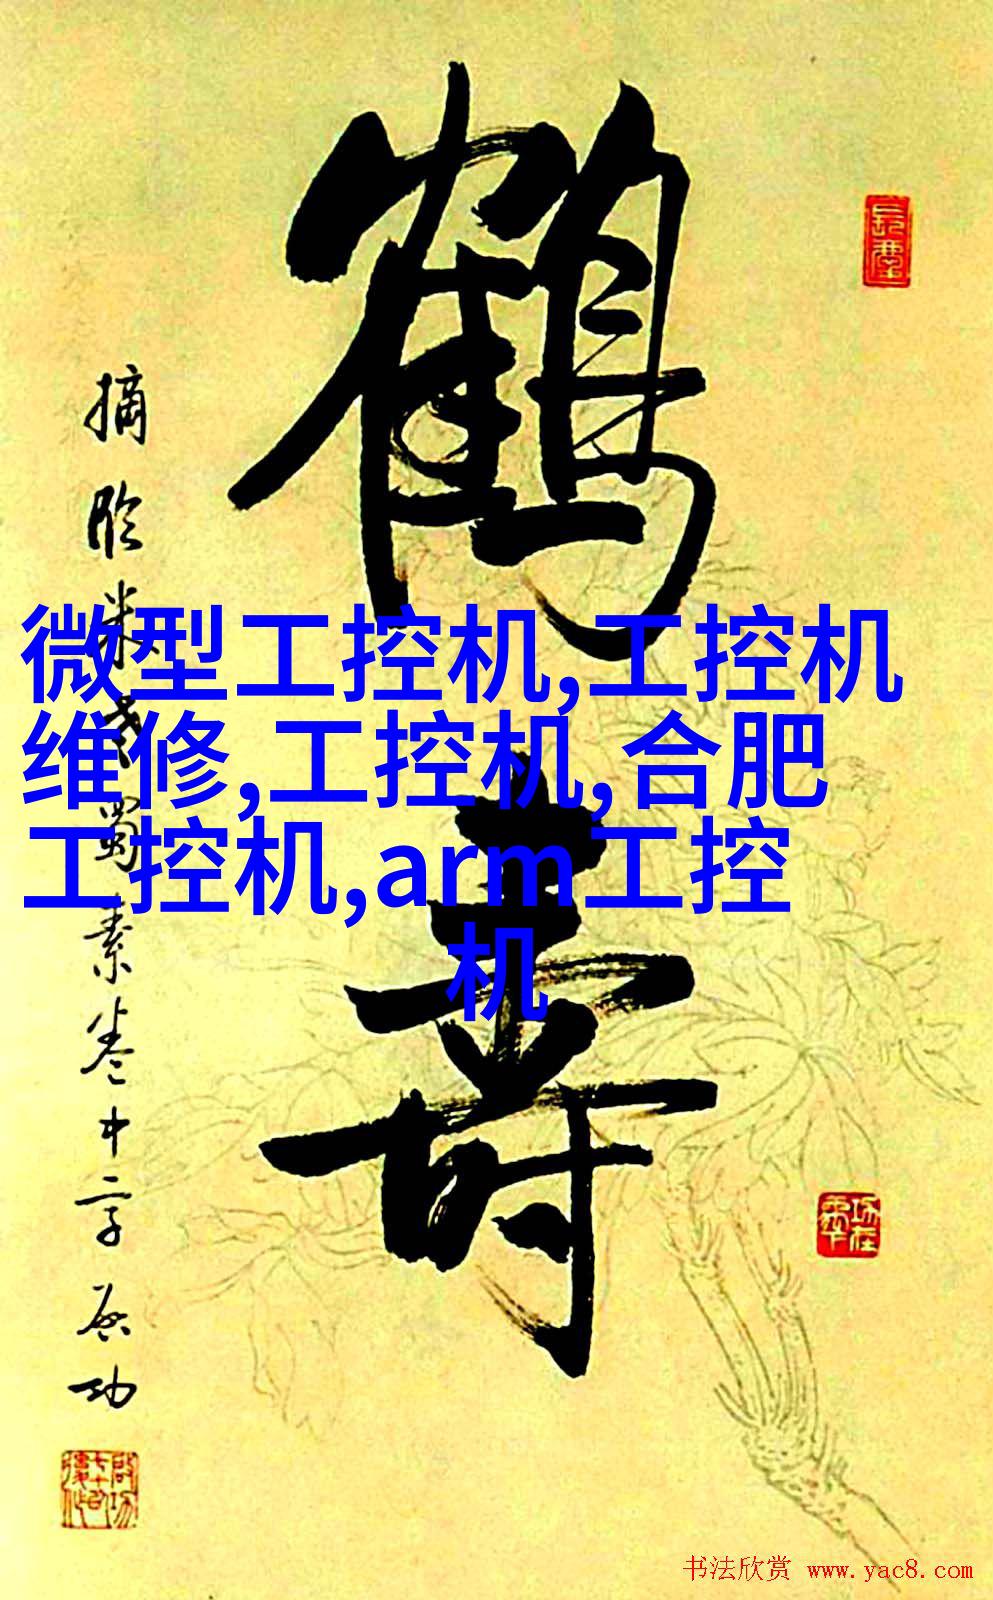 鹤寿
摘临米书蜀素卷中字启功
微型工控机,工控机
维修,工控机,合肥
工控机,arm工控
机
书法欣赏 www.yac8.com